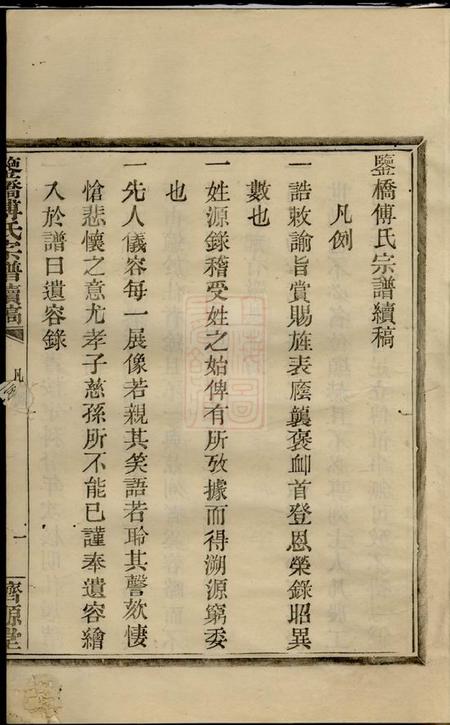 鑒橋傅氏宗譜續稿
凡例
一誥敕諭旨賞賜旌表廕襲褒卹首登恩榮錄昭異
數也
一姓源錄稽受姓之始俾有所攷據而得溯源窮委
也
一先人儀容每一展像若親其笑語若聆其謦欬悽
愴悲懷之意尤孝子慈孫所不能已謹奉遺容繪
入於譜曰遺容錄
鑒橋傅氏宗譜續稿
凡
一
齊源堂